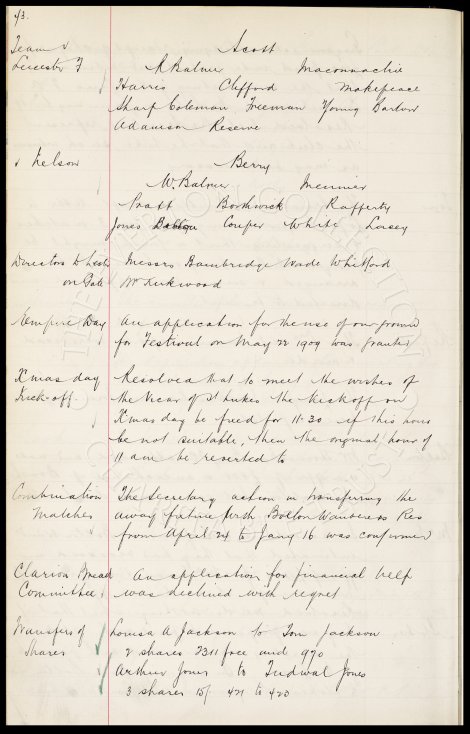 43.
Team v Scott
Leicester F R Balmer Maconnachie
Harris Clifford Makepeace
Sharp Coleman Freeman Young Barlow
Adamson Reserve
v Nelson Berry
W. Balmer Meunier
Pratt Borthwick Rafferty
Jones Couper White Lacey
Directors to Leicester Messrs Bainbridge Wade Whitford
on Gate Mr Kirkwood
Empire Day An application for the use of our ground
for Festival on May 22 1909 was granted
Xmas day Resolved that to meet the wishes of
Kick-off. the Vicar of St Lukes the kick off on
Xmas day be fixed for 11-30 if this hour
be not suitable, then the original hour of
11 am be reverted to
Combination The Secretary action in transferring the
Matches away fixture with Bolton Wanderers Res
from April 24 to Jany 16 was confirmed
Clarion Bread An application for financial help
Committee was declined with regret
Transfers of Louisa A Jackson to Tom Jackson
Shares 2 shares 2311 free and 970
Arthur Jones to Tudwal Jones
3 shares 15/ 421 to 423